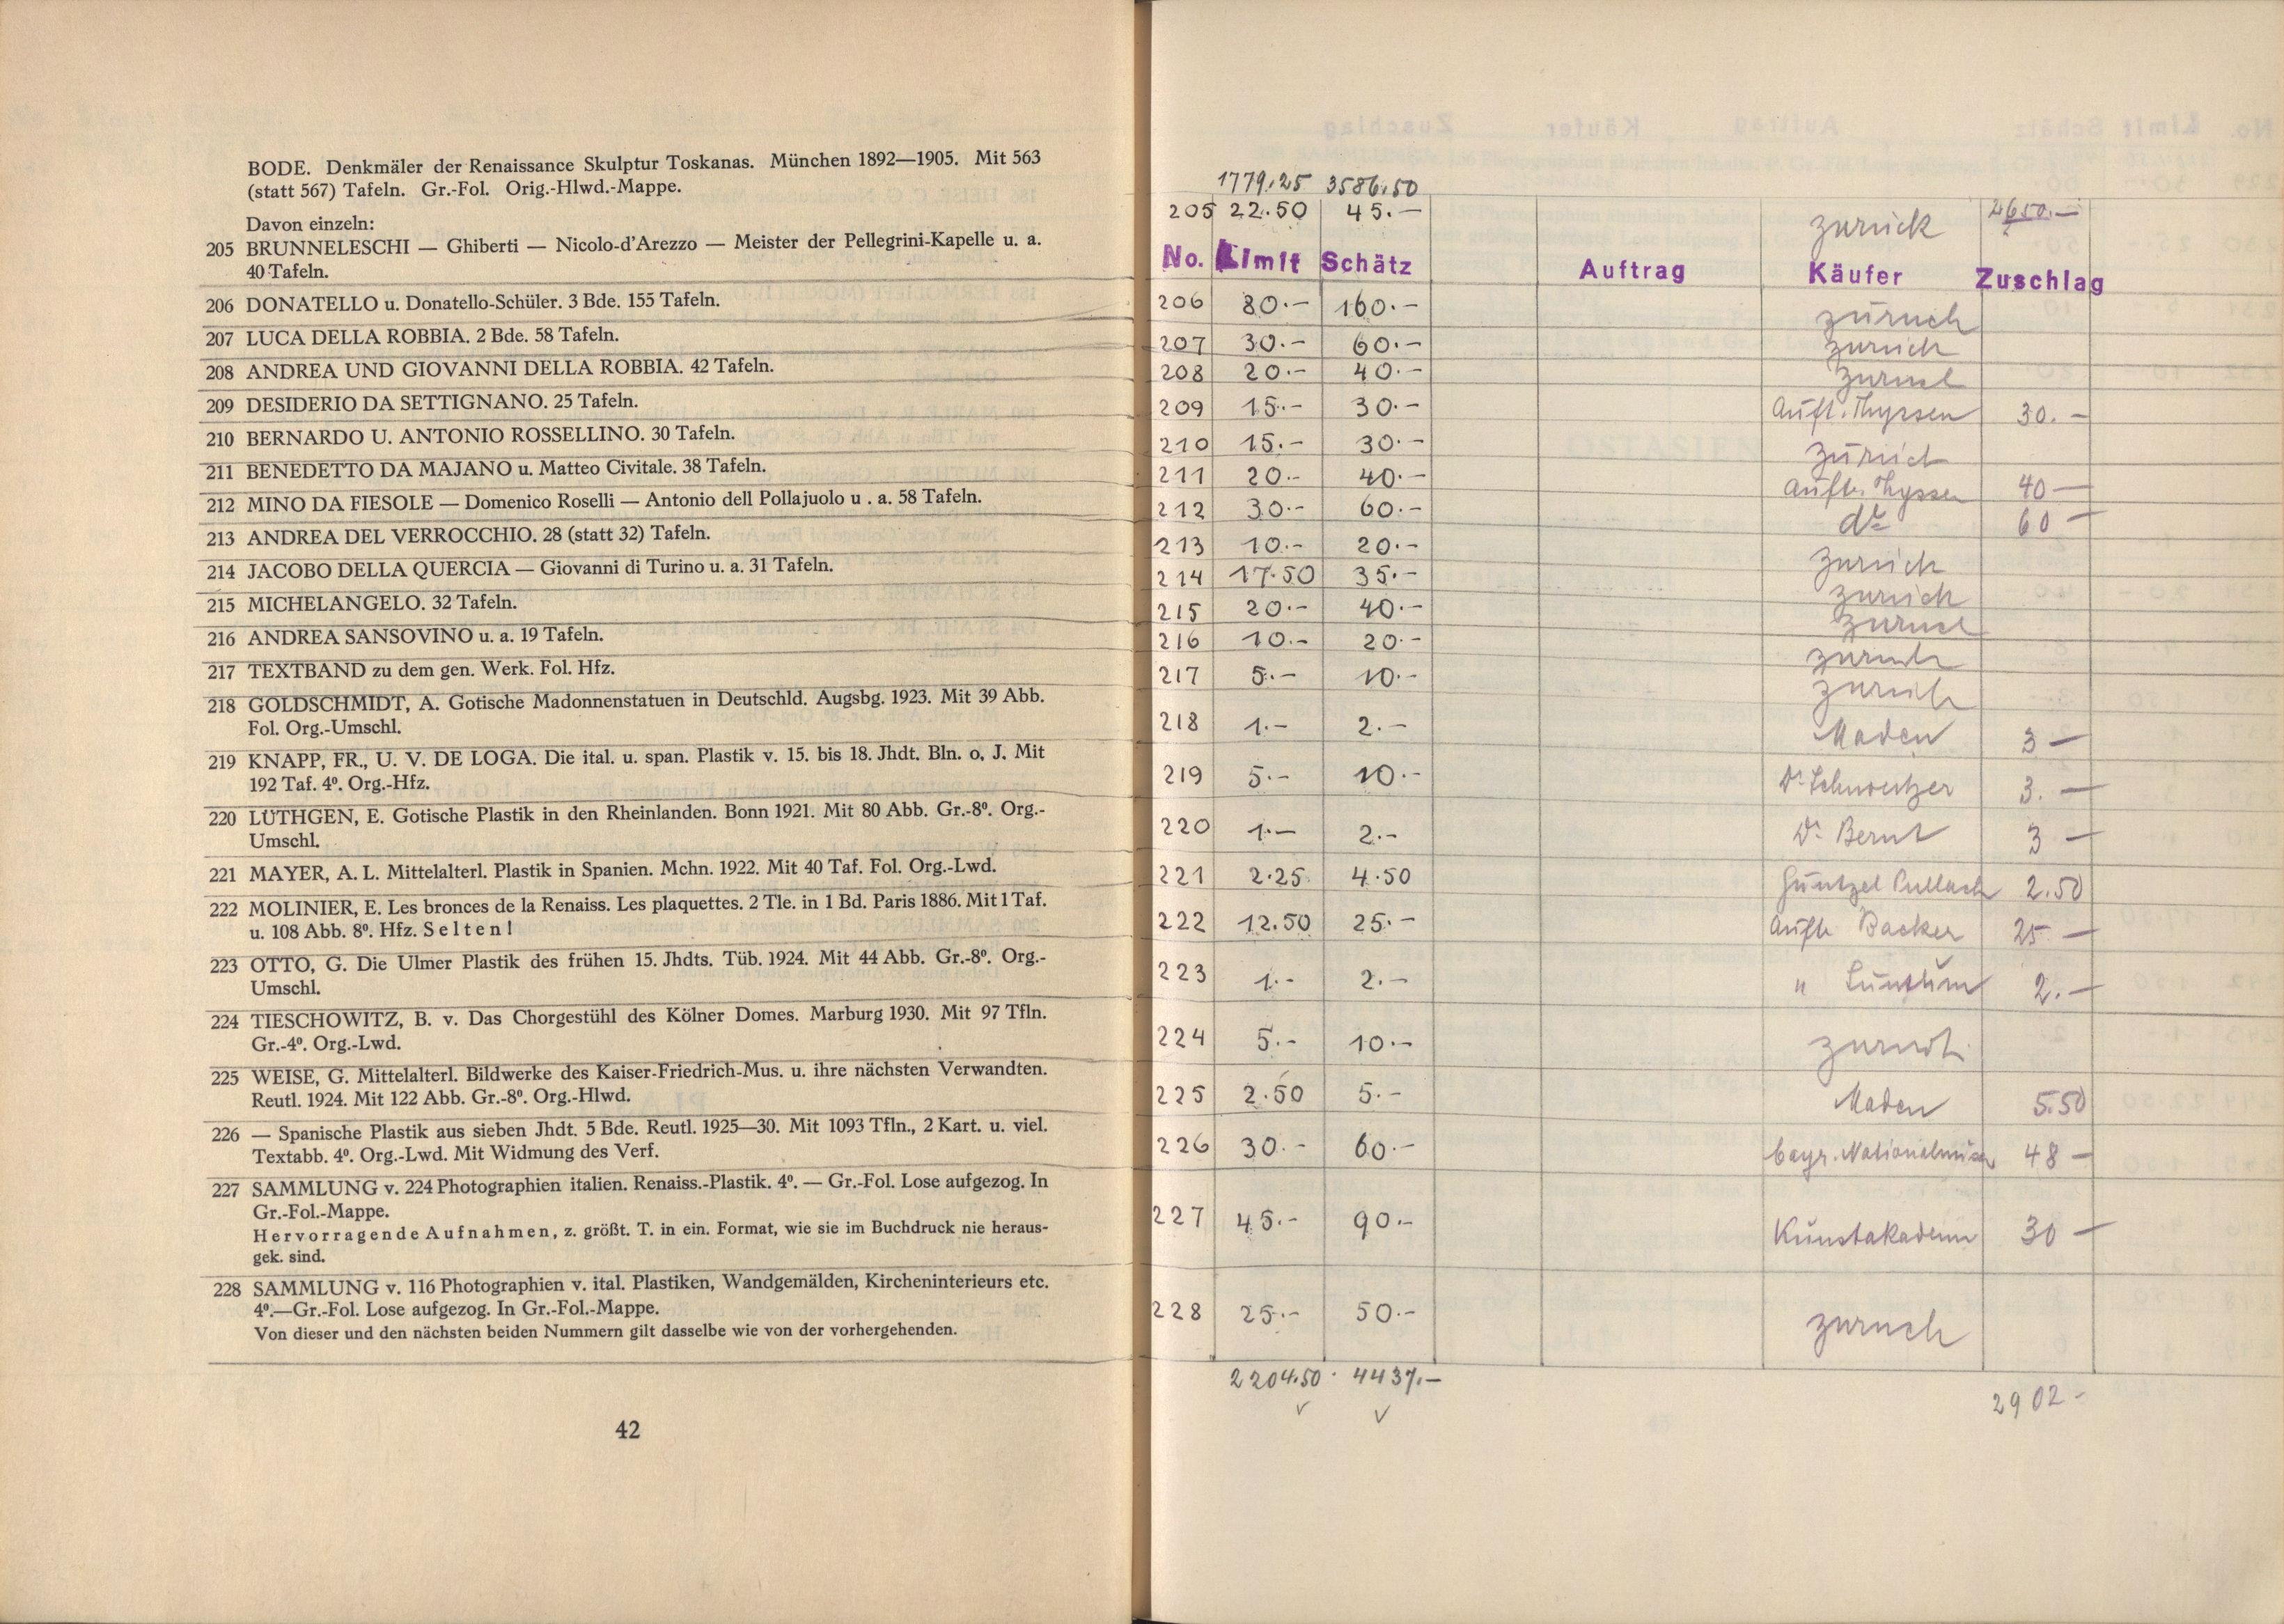 BODE. Denkmäler der Renaissance Skulptur Toskanas. München 1892—1905. Mit 563
(statt 567) Tafeln. Gr.-Fol. Orig.-Hlwd.-Mappe.
Davon einzeln:
205 BRUNNELESCHI — Ghiberti — Nicolo-d'Arezzo — Meister der Pellegrini-Kapelle u. a.
40 Tafeln.
206 DONATELLO u. Donatello-Schüler. 3 Bde. 155 Tafeln.
207 LUCA DELLA ROBBIA. 2 Bde. 58 Tafeln.
208 ANDREA UND GIOVANNI DELLA ROBBIA. 42 Tafeln.
209 DESIDERIO DA SETTIGNANO. 25 Tafeln.
210 BERNARDO U. ANTONIO ROSSELLINO. 30 Tafeln.
211 BENEDETTO DA MAJANO u. Matteo Civitale. 38 Tafeln.
212 MINO DA FIESOLE — Domenico Roselli — Antonio dell Pollajuolo u . a. 58 Tafeln.
213 ANDREA DEL VERROCCHIO. 28 (statt 32) Tafeln.
214 JACOBO DELLA QUERCIA — Giovanni di Turino u. a. 31 Tafeln.
215 MICHELANGELO. 32 Tafeln.
216 ANDREA SANSOVINO u. a. 19 Tafeln.
217 TEXTBAND zu dem gen. Werk. Fol. Hfz.
218 GOLDSCHMIDT, A. Gotische Madonnenstatuen in Deutschld. Augsbg. 1923. Mit 39 Abb.
Fol. Org.-Umschl.
219 KNAPP, FR., U. V. DE LOGA. Die ital. u. span. Plastik v. 15. bis 18. Jhdt. Bln. o. J. Mit
192 Taf. 4º. Org.-Hfz.
220 LÜTHGEN, E. Gotische Plastik in den Rheinlanden. Bonn 1921. Mit 80 Abb. Gr.-8º. Org.-
Umschl.
221 MAYER, A. L. Mittelalterl. Plastik in Spanien. Mchn. 1922. Mit 40 Taf. Fol. Org.-Lwd.
222 MOLINIER, E. Les bronces de la Renaiss. Les plaquettes. 2 Tle. in 1 Bd. Paris 1886. Mit 1 Taf.
u. 108 Abb. 8º. Hfz. Selten!
223 OTTO, G. Die Ulmer Plastik des frühen 15. Jhdts. Tüb. 1924. Mit 44 Abb. Gr.-8º. Org.-
Umschl.
224 TIESCHOWITZ, B. v. Das Chorgestühl des Kölner Domes. Marburg 1930. Mit 97 Tfln.
Gr.-4º. Org.-Lwd.
225 WEISE, G. Mittelalterl. Bildwerke des Kaiser-Friedrich-Mus. u. ihre nächsten Verwandten.
Reutl. 1924. Mit 122 Abb. Gr.-8º. Org.-Hlwd.
226 — Spanische Plastik aus sieben Jhdt. 5 Bde. Reutl. 1925—30. Mit 1093 Tfln., 2 Kart. u. viel.
Textabb. 4º. Org.-Lwd. Mit Widmung des Verf.
227 SAMMLUNG v. 224 Photographien italien. Renaiss.-Plastik. 4º. — Gr.-Fol. Lose aufgezog. In
Gr.-Fol.-Mappe.
Hervorragende Aufnahmen, z. größt. T. in ein. Format, wie sie im Buchdruck nie heraus-
gek. sind.
228 SAMMLUNG v. 116 Photographien v. ital. Plastiken, Wandgemälden, Kircheninterieurs etc.
4º.—Gr.-Fol. Lose aufgezog. In Gr.-Fol.-Mappe.
Von dieser und den nächsten beiden Nummern gilt dasselbe wie von der vorhergehenden.
42
1779.25 3586.50
205 22.50 45.— zurück 2650.—
No. Limit Schätz Auftrag Käufer Zuschlag
206 80.— 160.— zurück
207 30.— 60.— zurück
208 20.— 40.— zurück
209 15.— 30.— Auft. Thyssen 30.—
210 15.— 30.— zurück
211 20.— 40.— Auftr. Thyssen 40—
212 30.— 60.— dº 60—
213 10.— 20.— zurück
214 17.50 35.— zurück
215 20.— 40.— zurück
216 10.— 20.— zurück
217 5.— 10.— zurück
218 1.— 2.— Maden 3—
219 5.— 10.— Dr. Schweitzer 3.—
220 1.— 2.— Dr. Bernt 3—
221 2.25 4.50 Güntzel Pullach 2.50
222 12.50 25.— Auftr. Backer 25—
223 1.— 2.— " 2.—
224 5.— 10.— zurück
225 2.50 5.— Maden 5.50
226 30.— 60.— bayr. Nationalmus. 48—
227 45.— 90.— Kunstakadem 30—
228 25.— 50.— zurück
2204.50 4437.—
2902—